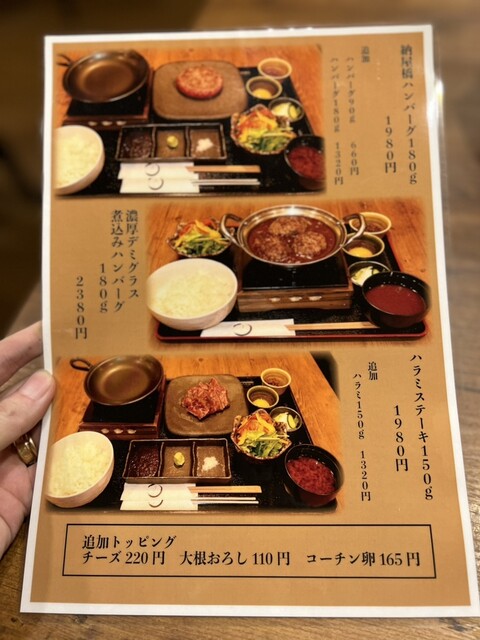 納屋橋ハンバーグ180g
1980円
追加
ハンバーグ90g 660円
ハンバーグ180g 1320円
濃厚デミグラス
煮込みハンバーグ
180g
2380円
ハラミステーキ150g
1980円
追加
ハラミ150g 1320円
追加トッピング
チーズ220円 大根おろし110円 コーチン卵165円